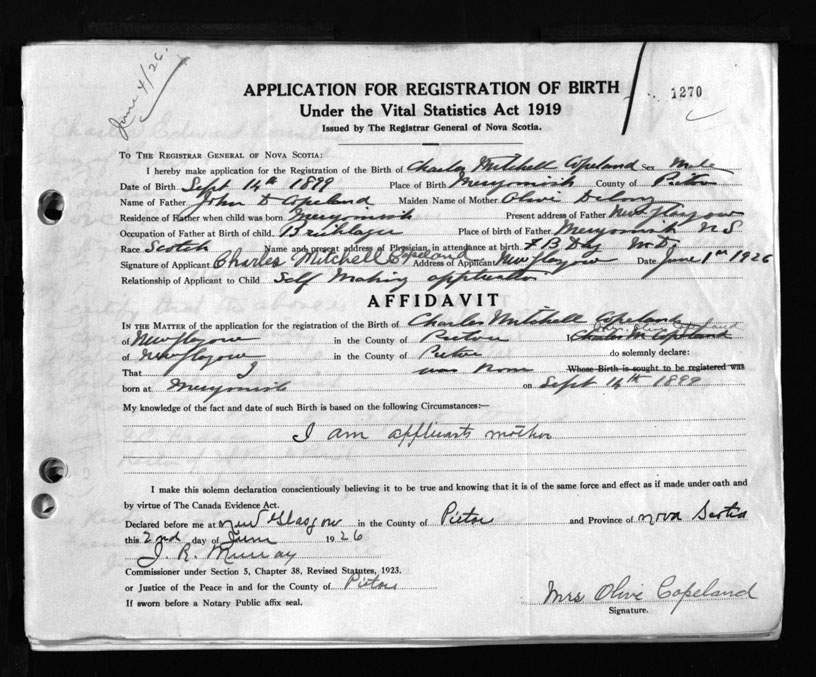 June 4/26.
APPLICATION FOR REGISTRATION OF BIRTH
1270
Under the Vital Statistics Act 1919
Issued by The Registrar General of Nova Scotia.
TO THE REGISTRAR GENERAL OF NOVA SCOTIA:
I hereby make application for the Registration of the Birth of Charles Mitchell Copeland Sex Male
Date of Birth Sept 14th 1899 Place of Birth Merigomish County of Pictou
Name of Father John D Copeland Maiden Name of Mother Olive
Residence of Father when child was born Merigomish Present address of Father New Glasgow
Occupation of Father at Birth of child. Bricklayer Place of birth of Father Merigomish N S
Race Scotch Name and present address of Physician, in attendance at birth. M.D.
Signature of Applicant Charles Mitchell Copeland Address of Applicant New Glasgow Date June 1st 1926
Relationship of Applicant to Child Self Making application
AFFIDAVIT
IN THE MATTER of the application for the registration of the Birth of Charles Mitchell Copeland
Copeland
of New Glasgow in the County of Pictou I, Charles M Copeland
of New Glasgow in the County of Pictou do solemnly declare:
That I was born Whose Birth is sought to be registered was
born at Merigomish on Sept 14th 1899
My knowledge of the fact and date of such Birth is based on the following Circumstances:—
I am applicants mother
I make this solemn declaration conscientiously believing it to be true and knowing that it is of the same force and effect as if made under oath and
by virtue of The Canada Evidence Act.
Declared before me at New Glasgow in the County of Pictou and Province of Nova Scotia
this 2nd day of June 1926
J. R. Murray
Commissioner under Section 5, Chapter 38, Revised Statutes, 1923.
or Justice of the Peace in and for the County of Pictou
If sworn before a Notary Public affix seal.
Mrs Olive Copeland
Signature.